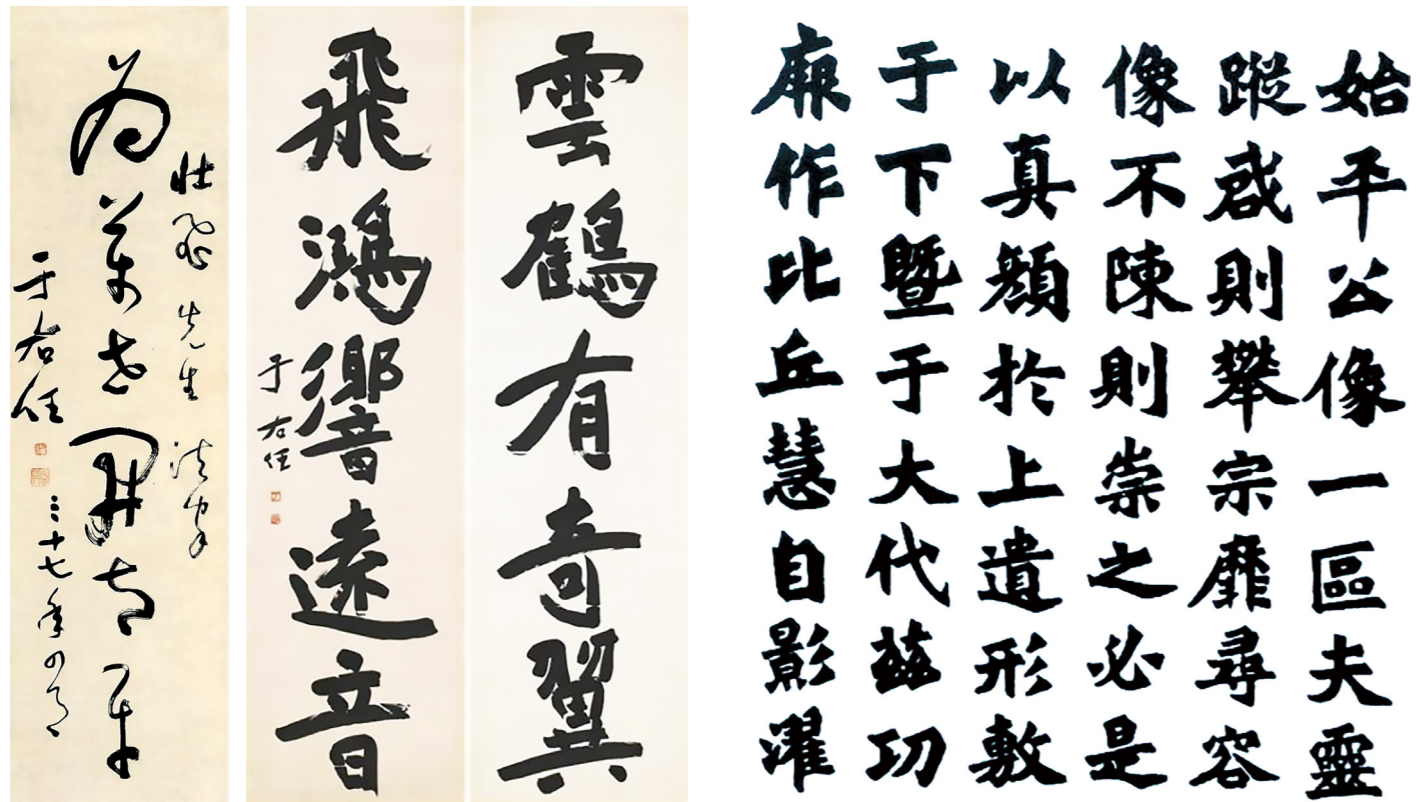 壯飛先生 法家
為萬世開太平
于右任
三十七年四月
雲鶴有奇翼
飛鴻響遠音
于右任
始平公像一區夫靈
蹤啟則攀宗靡尋容
像不陳則崇之必是
以真顏於上遺形敷
于下暨于大代茲功
厥作比丘慧自影濯